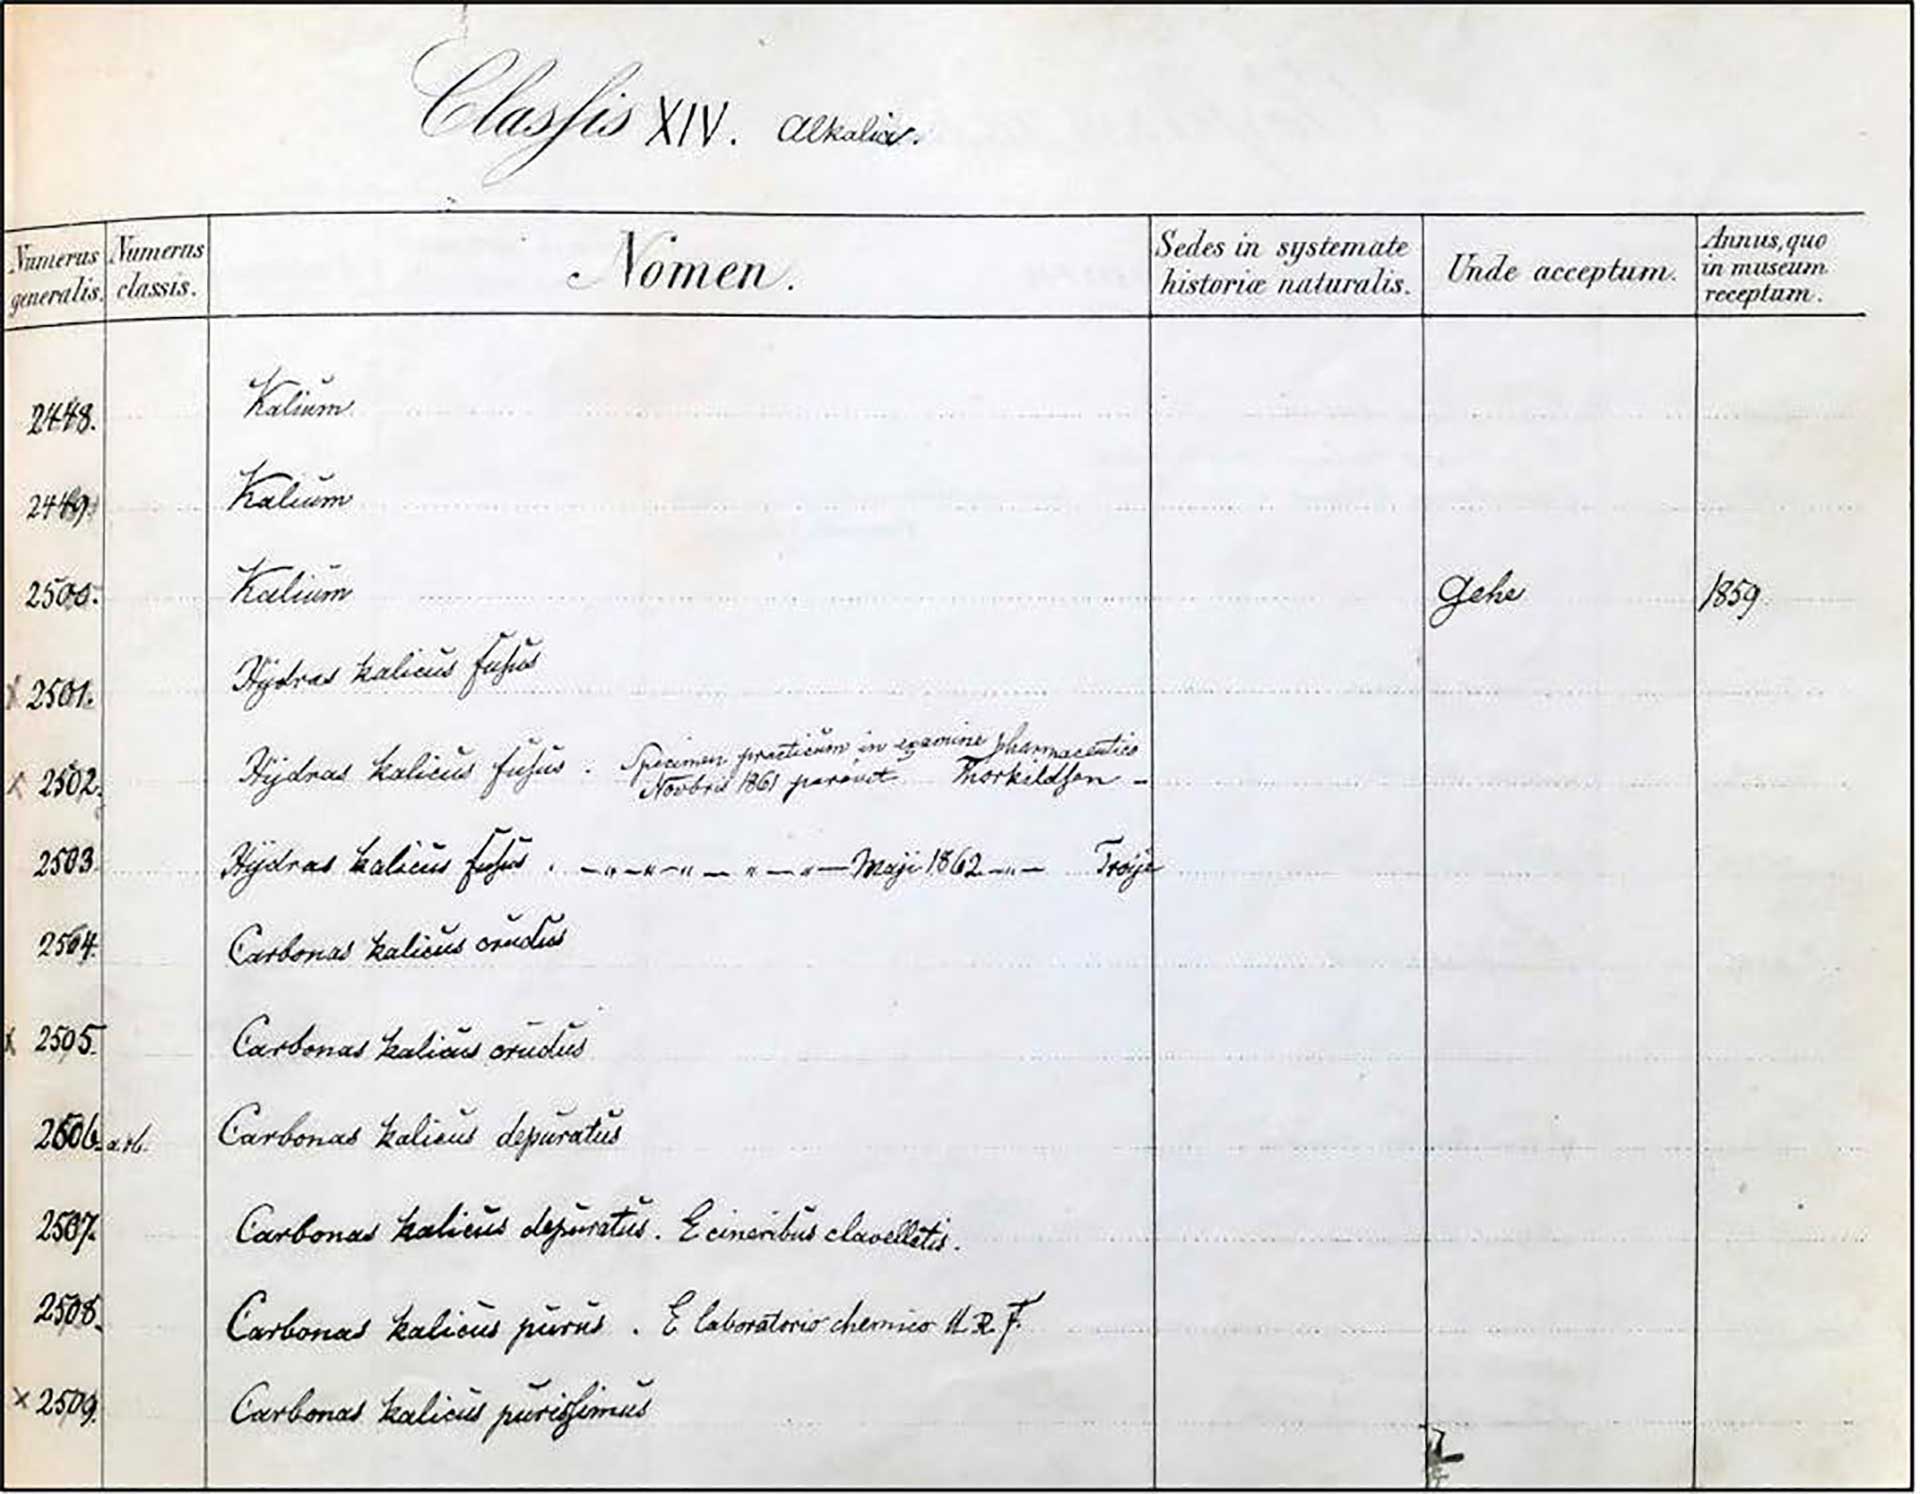 Classis XIV. Alkalia.
Numerus generalis. Numerus classis. Nomen. Sedes in systemate historiæ naturalis. Unde acceptum. Annus, quo in museum receptum.
2448. Kalium
2449 Kalium
2500. Kalium Gehe 1859
x 2501. Hydras kalicus fusus
x 2502. Hydras kalicus fusus . Specimen practicum in examine pharmaceutico
Novbris 1861 paravit Thorkildsen -
2503 Hydras kalicus fusus . -"-"-"- " - "- Maji 1862 -"- Troije
2504. Carbonas kalicus crudus
x 2505. Carbonas kalicus crudus
2506. a.b. Carbonas kalicus depuratus
2507. Carbonas kalicus depuratus. E cineribus clavellatis.
2508. Carbonas kalicus purus . E laboratorio chemico U. R. F.
x 2509. Carbonas kalicus purissimus